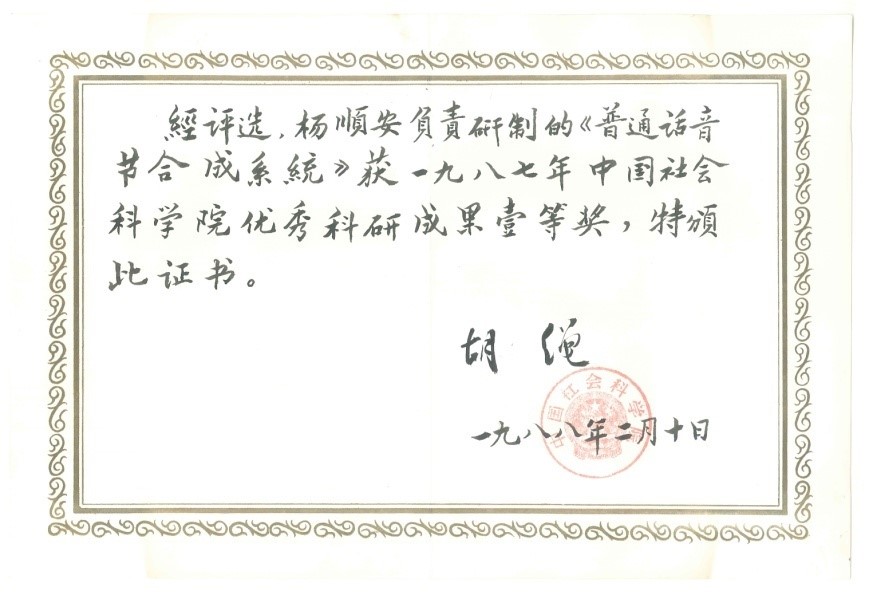 經评选,杨順安負責研制的《普通话音
节合成系統》获一九八七年中国社会
科学院优秀科研成果壹等奖,特頒
此证书。
胡绳
中国社会科学院
一九八八年二月十日